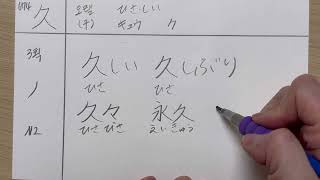 久 오랠 ひさしい
(구) キュウ ク
3획 久しい 久しぶり
ノ ひさ ひさ
N2 久々 永久
ひさ びさ えいきゅう